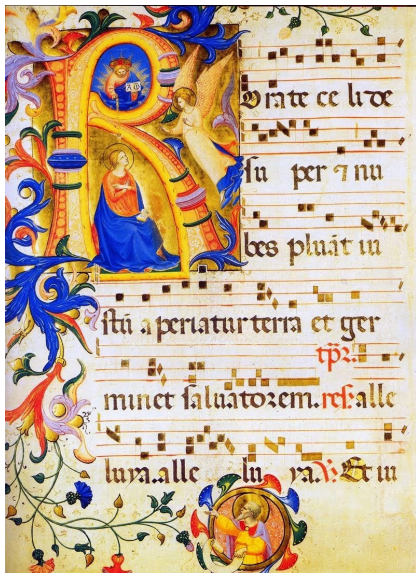 R orate celi de
su per ⁊ nu
bes pluāt iu
stū aperiatur terra et ger
tp̄r.
minet saluatorem. res: alle
luya..alle lu ya. V. Et iu